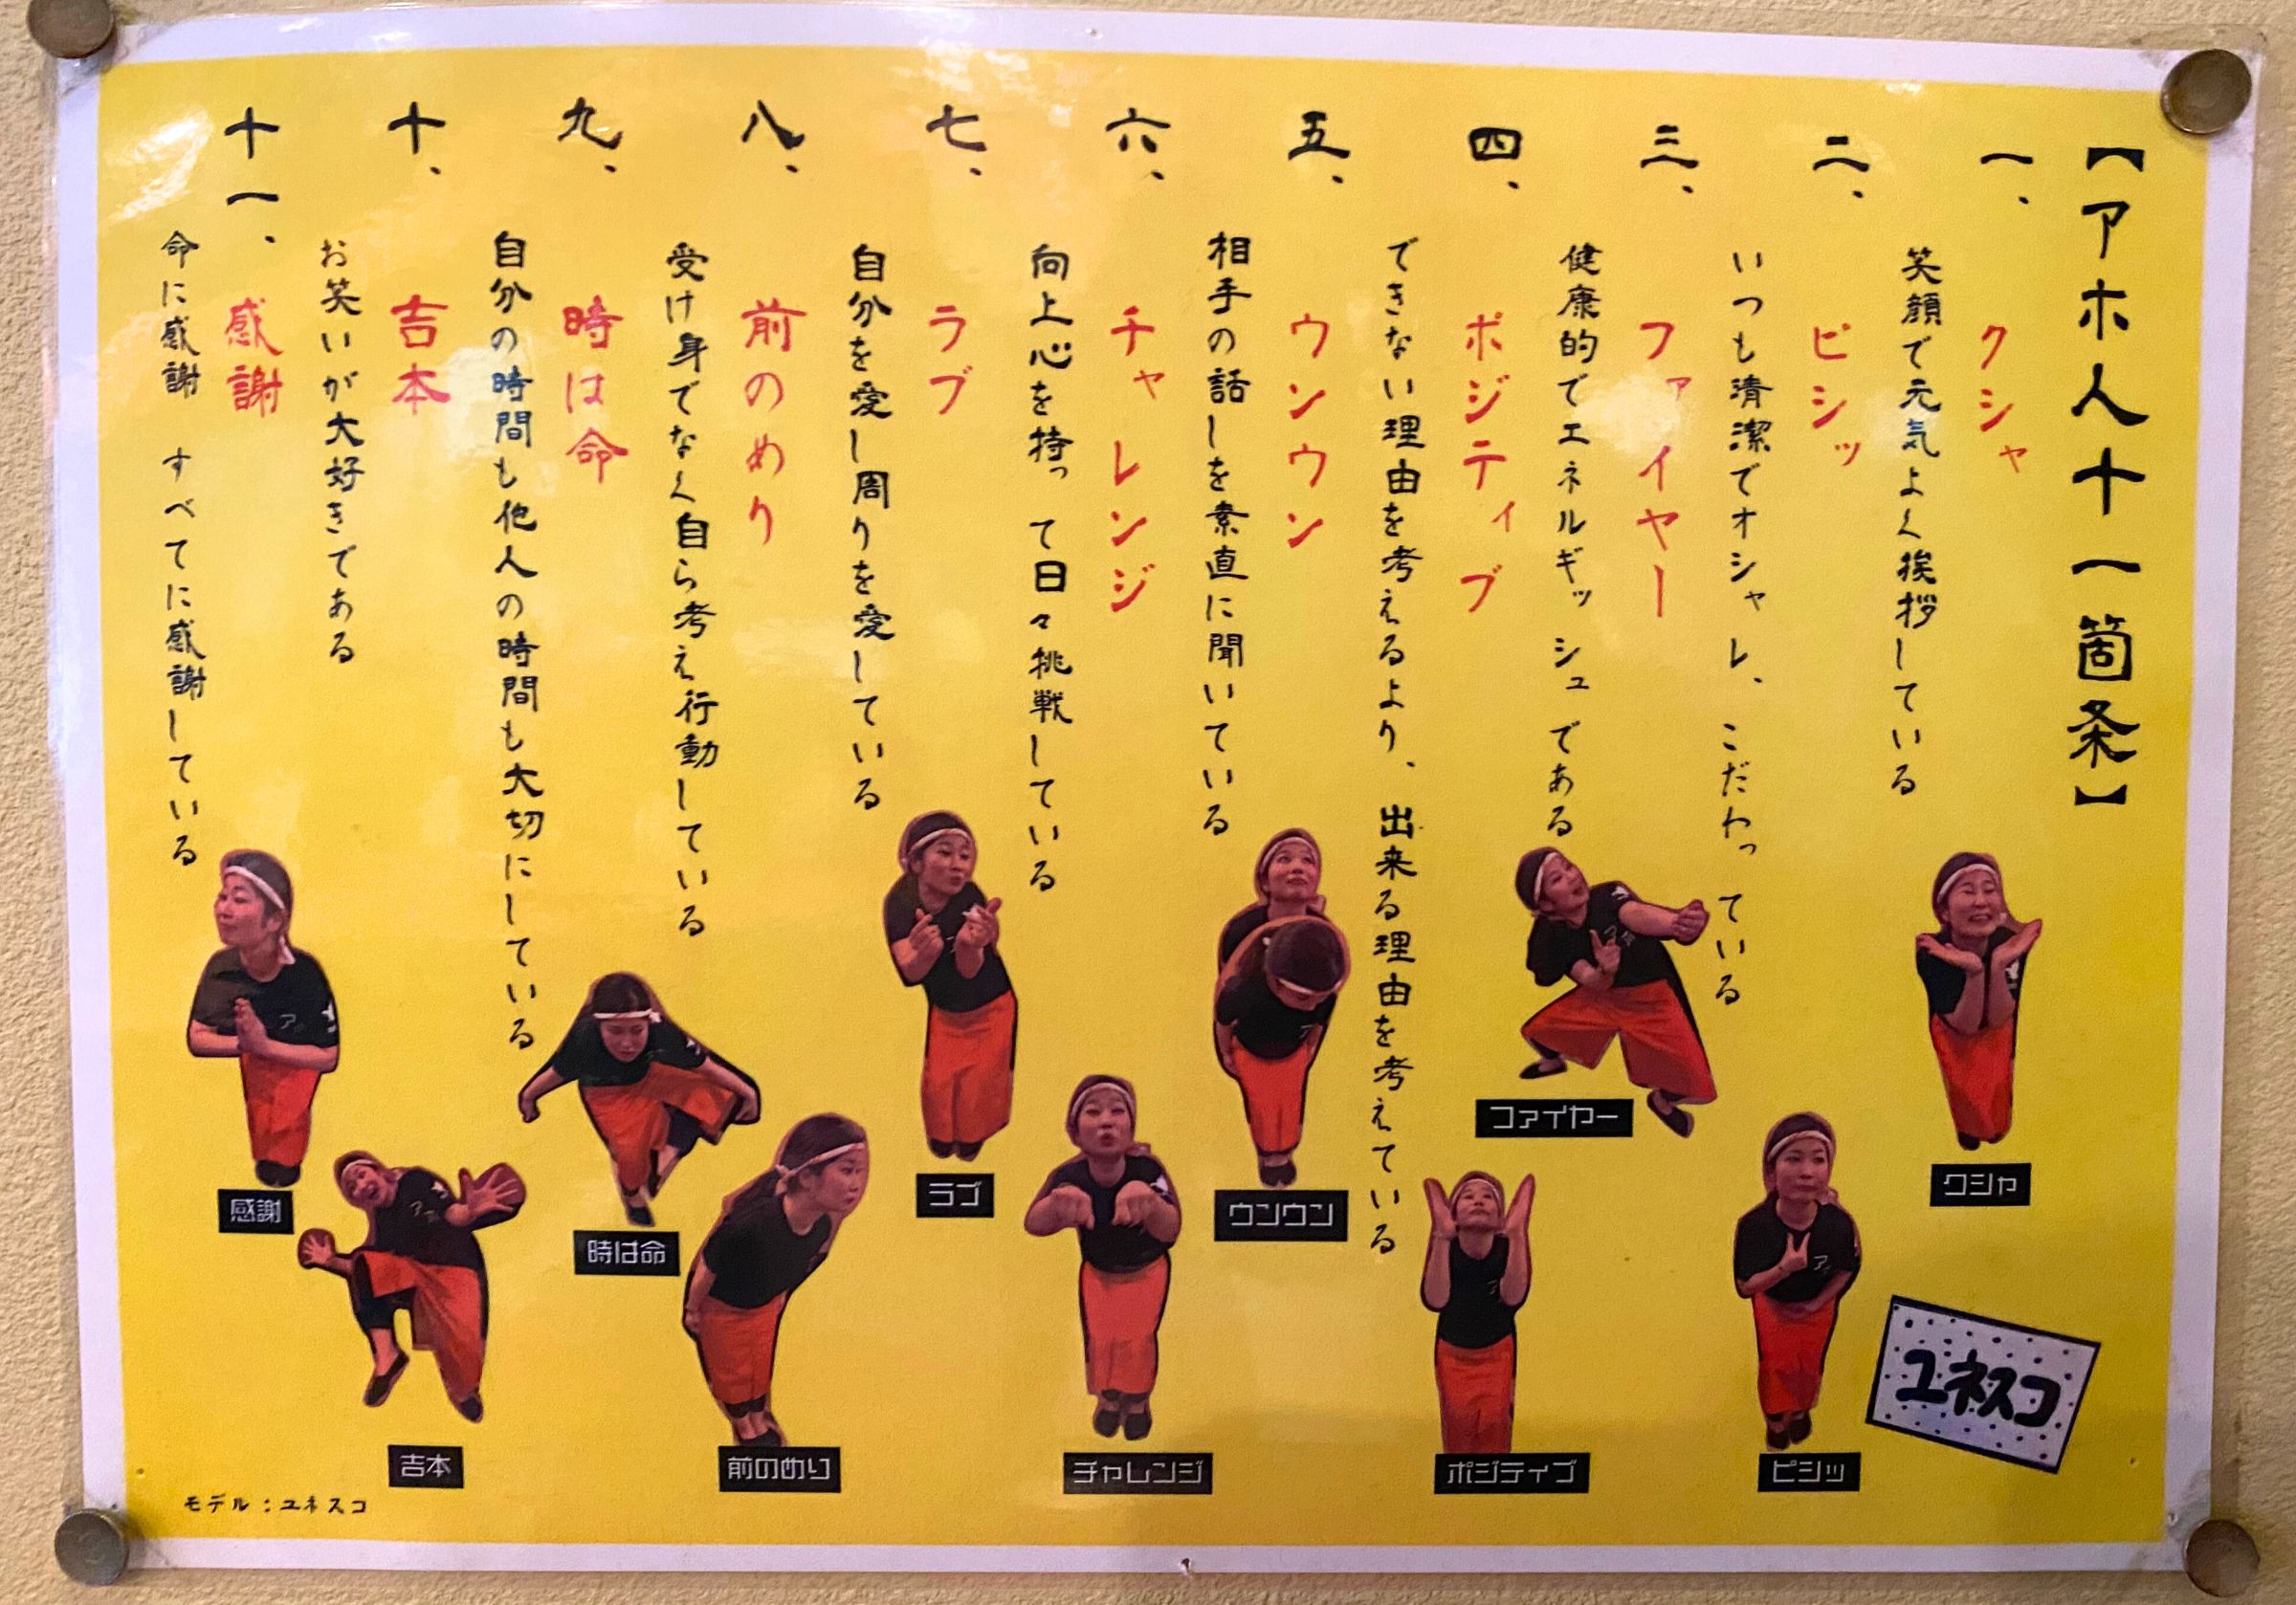 【アホ人十一箇条】
一、クシャ
笑顔で元気よく挨拶している
二、ピシッ
いつも清潔でオシャレ、こだわっている
三、ファイヤー
健康的でエネルギッシュである
四、ポジティブ
できない理由を考えるより、出来る理由を考えている
五、ウンウン
相手の話しを素直に聞いている
六、チャレンジ
向上心を持って日々挑戦している
七、ラブ
自分を愛し周りを愛している
八、前のめり
受け身でなく自ら考え行動している
九、時は命
自分の時間も他人の時間も大切にしている
十、吉本
お笑いが大好きである
十一、感謝
命に感謝 すべてに感謝している
クシャ
ピシッ
ファイヤー
ポジティブ
ウンウン
チャレンジ
ラブ
前のめり
時は命
吉本
感謝
ユネスコ
モデル：ユネスコ